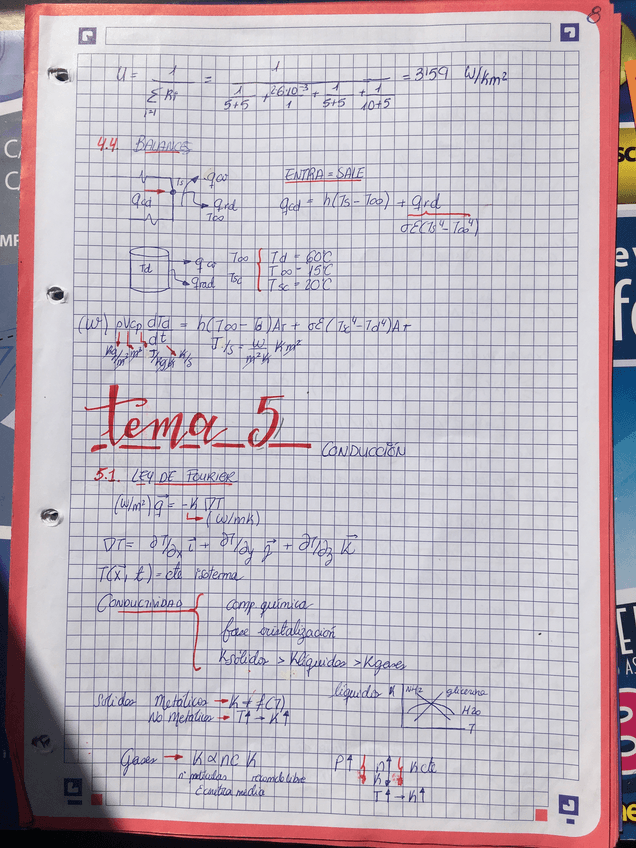 8
U = 1 / Σ Ri i=1 = 1 / (1/5+5 + 26·10⁻³/1 + 1/5+5 + 1/10+5) = 3'159 W/km²
4.4. BALANCES
Ts qco
qcd qrd
T∞
ENTRA = SALE
qcd = h(Ts - T∞) + qrd
σε(Ts⁴ - T∞⁴)
Td qco T∞
qrad Tsc
Td = 60°C
T∞ = 15°C
Tsc = 20°C
(W) ρVcp dTd/dt = h(T∞ - Td)Ar + σε(Tsc⁴ - Td⁴)Ar
Kg/m³ m³ J/kgK K/s J/s = W/m²K K m²
tema 5 CONDUCCIÓN
5.1. LEY DE FOURIER
(W/m²) q⃗ = -K ∇T
(W/mK)
∇T = ∂T/∂x i⃗ + ∂T/∂y j⃗ + ∂T/∂z k⃗
T(x⃗, t) = cte isoterma
CONDUCTIVIDAD
comp. química
fase cristalización
Ksólidos > Klíquidos > Kgases
Sólidos Metálicos → K ≠ f(T)
No Metálicos → T↑ → K↑
líquidos K NH3 glicerina
H2O
T
Gases → K α n c
nº partículas recorrido libre
C cuadrática media
P↑ n↑ K cte
T↑ → K↑